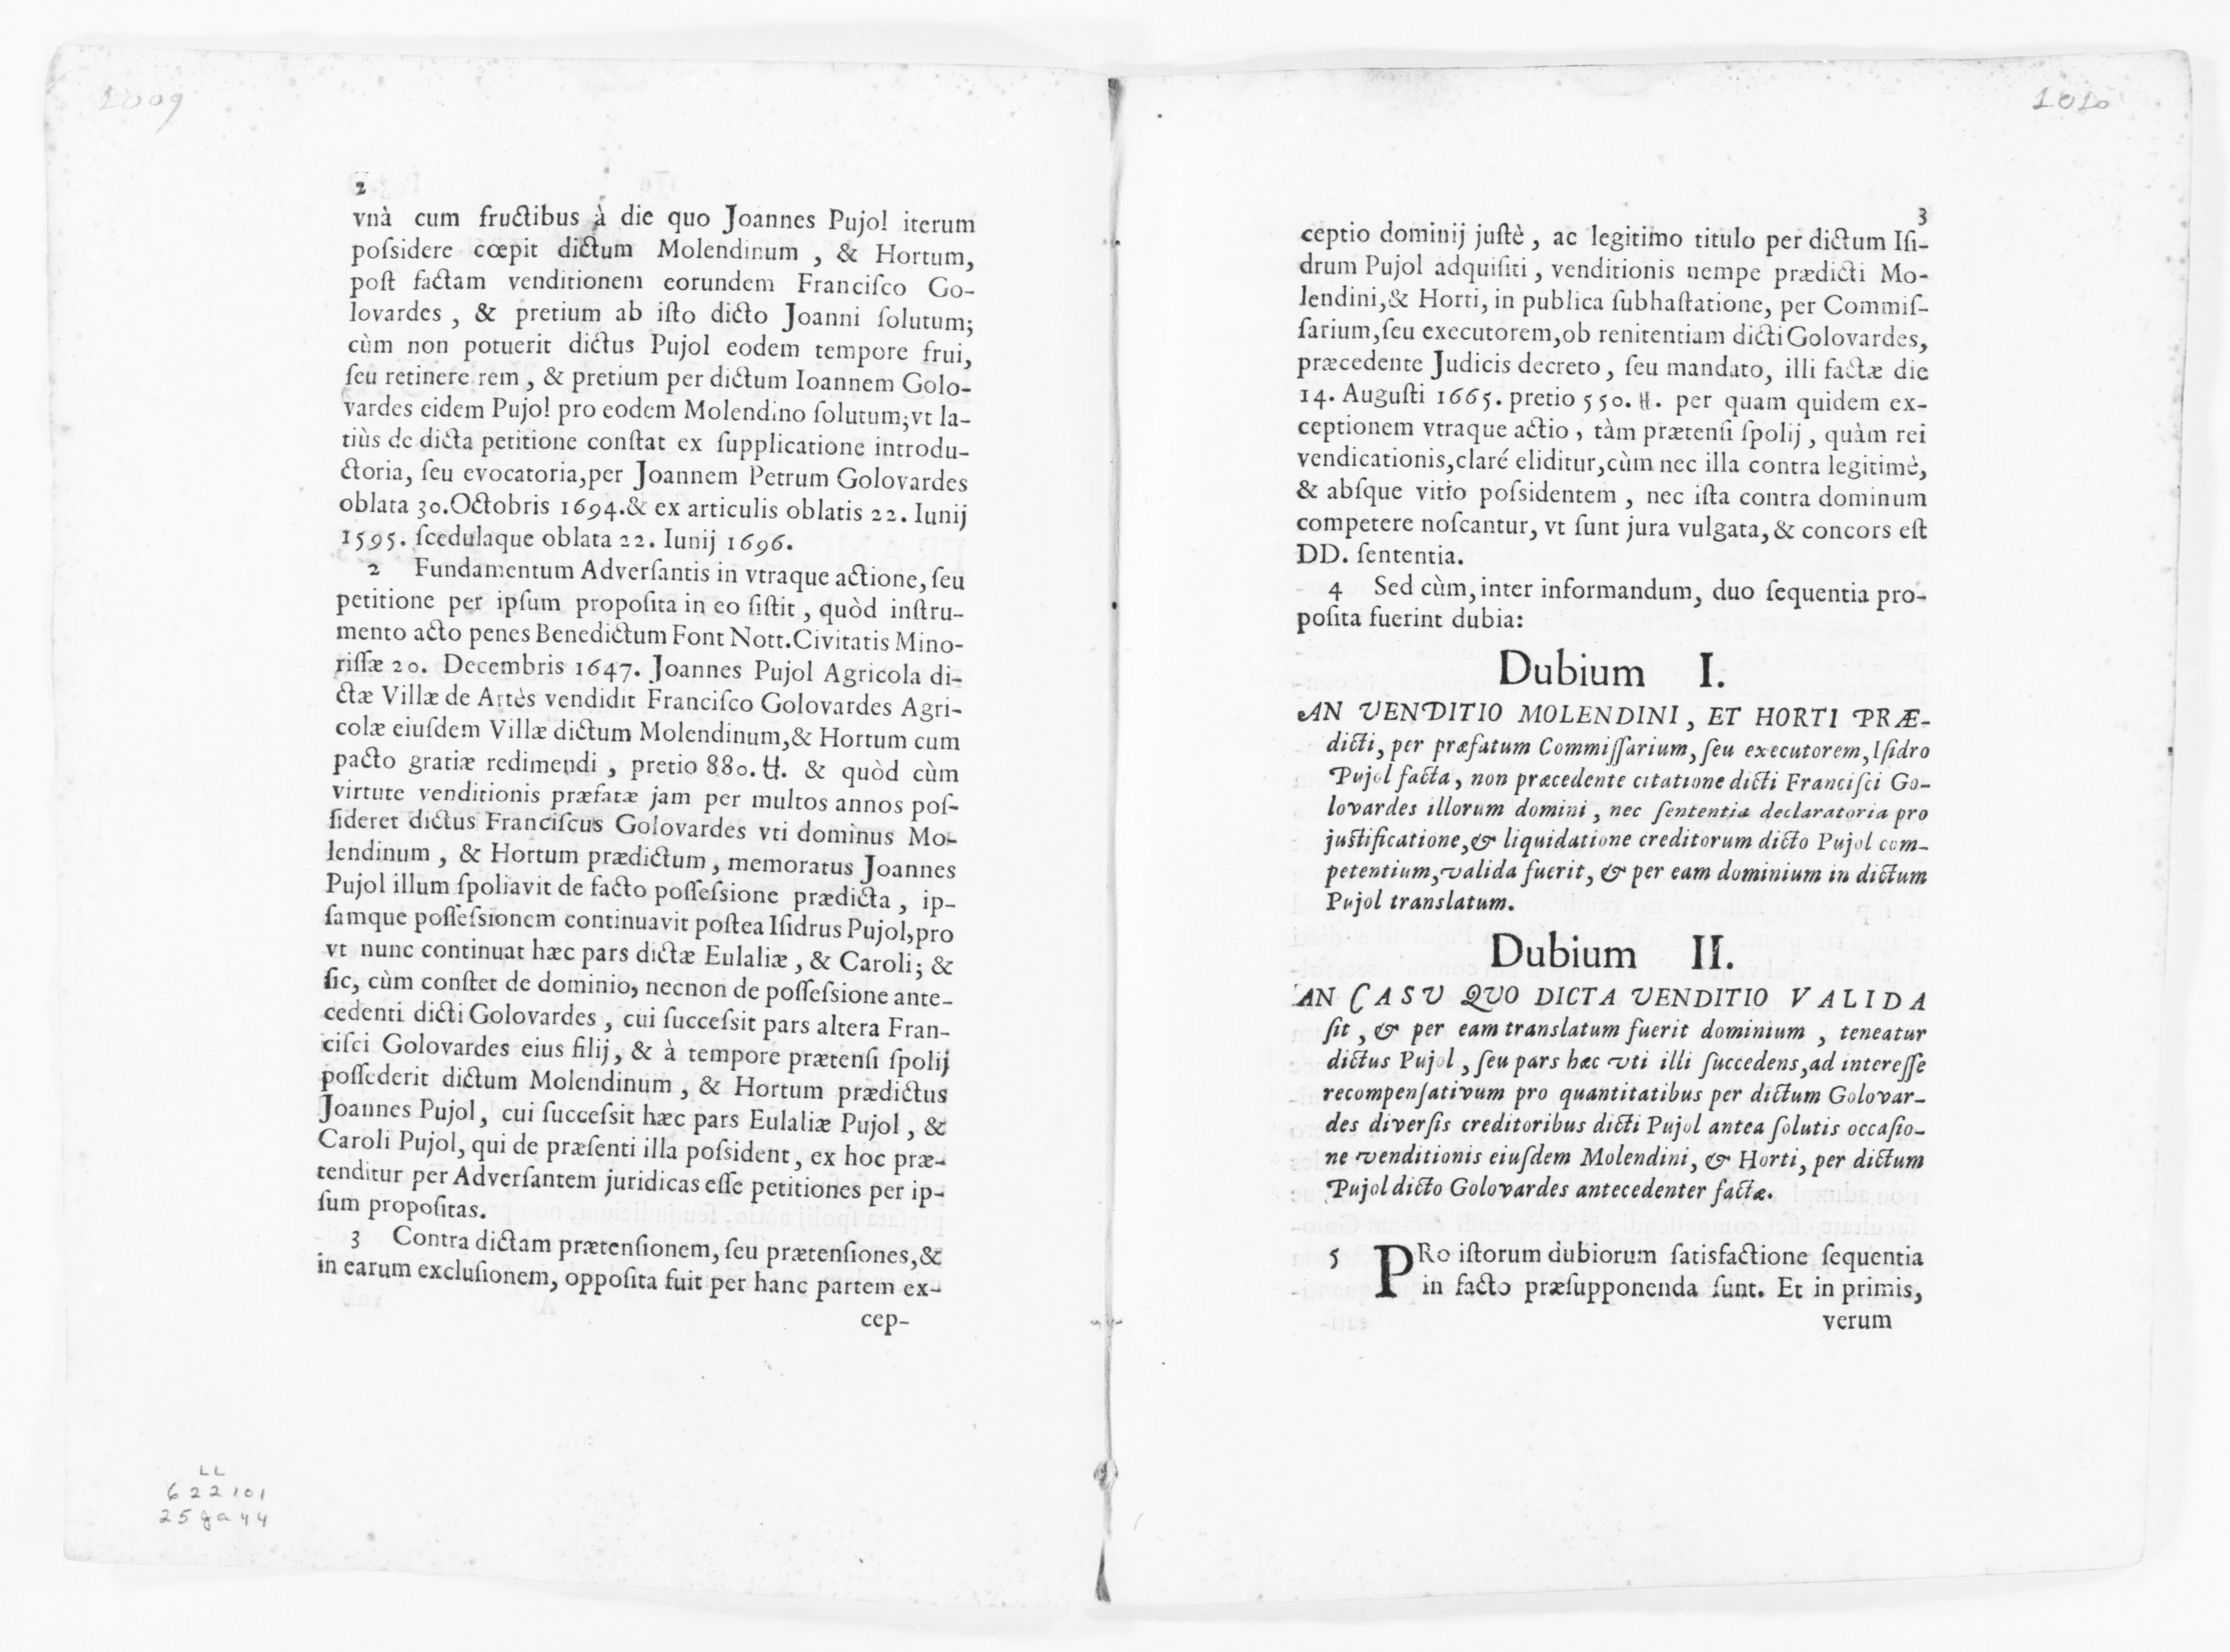 1009
2
vnà cum fructibus à die quo Joannes Pujol iterum
poſsidere cœpit dictum Molendinum , & Hortum,
poſt factam venditionem eorundem Franciſco Go-
lovardes , & pretium ab iſto dicto Joanni ſolutum;
cùm non potuerit dictus Pujol eodem tempore frui,
ſeu retinere rem , & pretium per dictum Ioannem Golo-
vardes eidem Pujol pro eodem Molendino ſolutum;vt la-
tiùs de dicta petitione conſtat ex ſupplicatione introdu-
ctoria, ſeu evocatoria,per Joannem Petrum Golovardes
oblata 30.Octobris 1694.& ex articulis oblatis 22. Iunij
1595. ſcedulaque oblata 22. Iunij 1696.
2 Fundamentum Adverſantis in vtraque actione, ſeu
petitione per ipſum propoſita in eo ſiſtit , quòd inſtru-
mento acto penes Benedictum Font Nott.Civitatis Mino-
riſſæ 20. Decembris 1647. Joannes Pujol Agricola di-
ctæ Villæ de Artès vendidit Franciſco Golovardes Agri-
colæ eiuſdem Villæ dictum Molendinum,& Hortum cum
pacto gratiæ redimendi , pretio 880. ℔. & quòd cùm
virtute venditionis præfatæ jam per multos annos poſ-
ſideret dictus Franciſcus Golovardes vti dominus Mo-
lendinum , & Hortum prædictum , memoratus Joannes
Pujol illum ſpoliavit de facto poſſeſsione prædicta , ip-
ſamque poſſeſsionem continuavit poſtea Iſidrus Pujol,pro
vt nunc continuat hæc pars dictæ Eulaliæ , & Caroli; &
ſic, cùm conſtet de dominio, necnon de poſſeſsione ante-
cedenti dicti Golovardes , cui ſucceſsit pars altera Fran-
ciſci Golovardes eius filij, & à tempore prætenſi ſpolij
poſſederit dictum Molendinum , & Hortum prædictus
Joannes Pujol, cui ſucceſsit hæc pars Eulaliæ Pujol , &
Caroli Pujol, qui de præſenti illa poſsident, ex hoc præ-
tenditur per Adverſantem juridicas eſſe petitiones per ip-
ſum propoſitas.
3 Contra dictam prætenſionem, ſeu prætenſiones,&
in earum excluſionem, oppoſita fuit per hanc partem ex-
cep-
LL
622101
25 ga 44
1010
3
ceptio dominij juſtè , ac legitimo titulo per dictum Iſi-
drum Pujol adquiſiti , venditionis nempe prædicti Mo-
lendini,& Horti, in publica ſubhaſtatione, per Commiſ-
ſarium,ſeu executorem,ob renitentiam dicti Golovardes,
præcedente Judicis decreto, ſeu mandato, illi factæ die
14. Auguſti 1665. pretio 550. ℔. per quam quidem ex-
ceptionem vtraque actio , tàm prætenſi ſpolij , quàm rei
vendicationis,claré eliditur,cùm nec illa contra legitimè,
& abſque vitio poſsidentem , nec iſta contra dominum
competere noſcantur, vt ſunt jura vulgata, & concors eſt
DD. ſententia.
4 Sed cùm, inter informandum, duo ſequentia pro-
poſita fuerint dubia:
Dubium I.
AN VENDITIO MOLENDINI, ET HORTI PRÆ-
dicti, per præfatum Commiſſarium, ſeu executorem, Iſidro
Pujol facta, non præcedente citatione dicti Franciſci Go-
lovardes illorum domini , nec ſententia declaratoria pro
juſtificatione,& liquidatione creditorum dicto Pujol com-
petentium,valida fuerit, & per eam dominium in dictum
Pujol translatum.
Dubium II.
AN CASU QVO DICTA VENDITIO VALIDA
ſit , & per eam translatum fuerit dominium , teneatur
dictus Pujol , ſeu pars hæc vti illi ſuccedens,ad intereſſe
recompenſativum pro quantitatibus per dictum Golovar-
des diverſis creditoribus dicti Pujol antea ſolutis occaſio-
ne venditionis eiuſdem Molendini, & Horti, per dictum
Pujol dicto Golovardes antecedenter factæ.
5 PRo iſtorum dubiorum ſatisfactione ſequentia
in facto præſupponenda ſunt. Et in primis,
verum